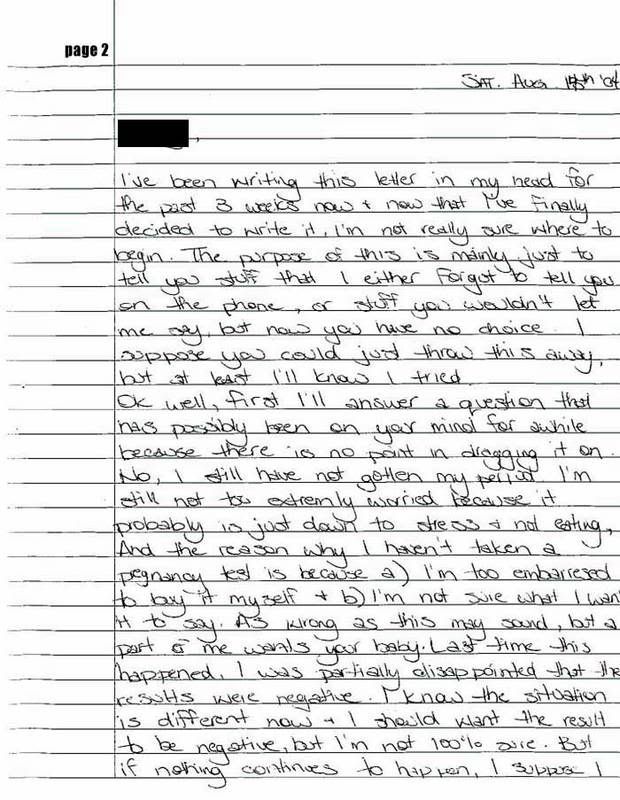 page 2
Sat. Aug. 15th '04
,
I've been writing this letter in my head for
the past 3 weeks now + now that I've finally
decided to write it, I'm not really sure where to
begin. The purpose of this is mainly just to
tell you stuff that I either forgot to tell you
on the phone, or stuff you wouldn't let
me say, but now you have no choice. I
suppose you could just throw this away,
but at least I'll know I tried.
Ok well, first I'll answer a question that
has possibly been on your mind for awhile
because there is no point in dragging it on.
No, I still have not gotten my period. I'm
still not too extremly worried because it
probably is just down to stress + not eating,
And the reason why I haven't taken a
pegnancy test is because a) I'm too embarresed
to buy it myself + b) I'm not sure what I wan
it to say. As wrong as this may sound, but a
part o me wants your baby. Last time this
happened, I was partially disappointed that the
results were negative. I know the situation
is different now + I should want the result
to be negative, but I'm not 100% sure. But
if nothing continues to happen, I suppose I